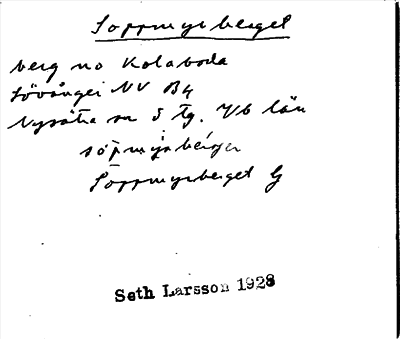 Soppmyrberget
berg no Kolaboda
Lövånger NV B4
Nysätra sn S tg. Vb län
sòpmyrbérger
Soppmyrberget G
Seth Larsson 1928